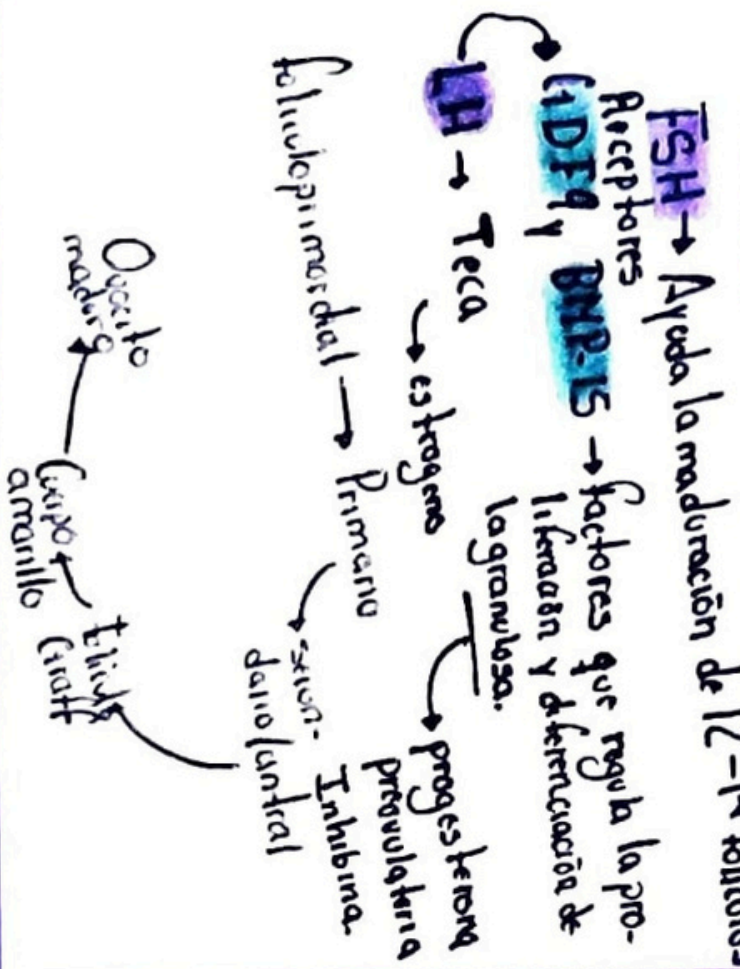 FSH → Ayuda la maduración de 12-14 folículos
Receptores
GDF9 y BMP-15 → factores que regula la pro-
liferación y diferenciación de
la granulosa.
LH → Teca
→ estrogeno
progesterona
preovulatoria
Inhibina
foliculo primordial → Primario
secun-
dario/antral
foliculo
Graff
Cuerpo
amarillo
Ovocito
maduro